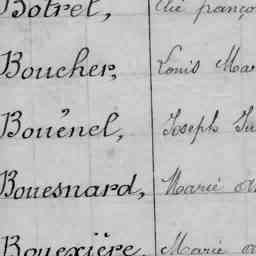 Botrel,
Boucher, Louis Mar
Bouënel, Joseph
Bouesnard, Marie
Bouexière, Marie